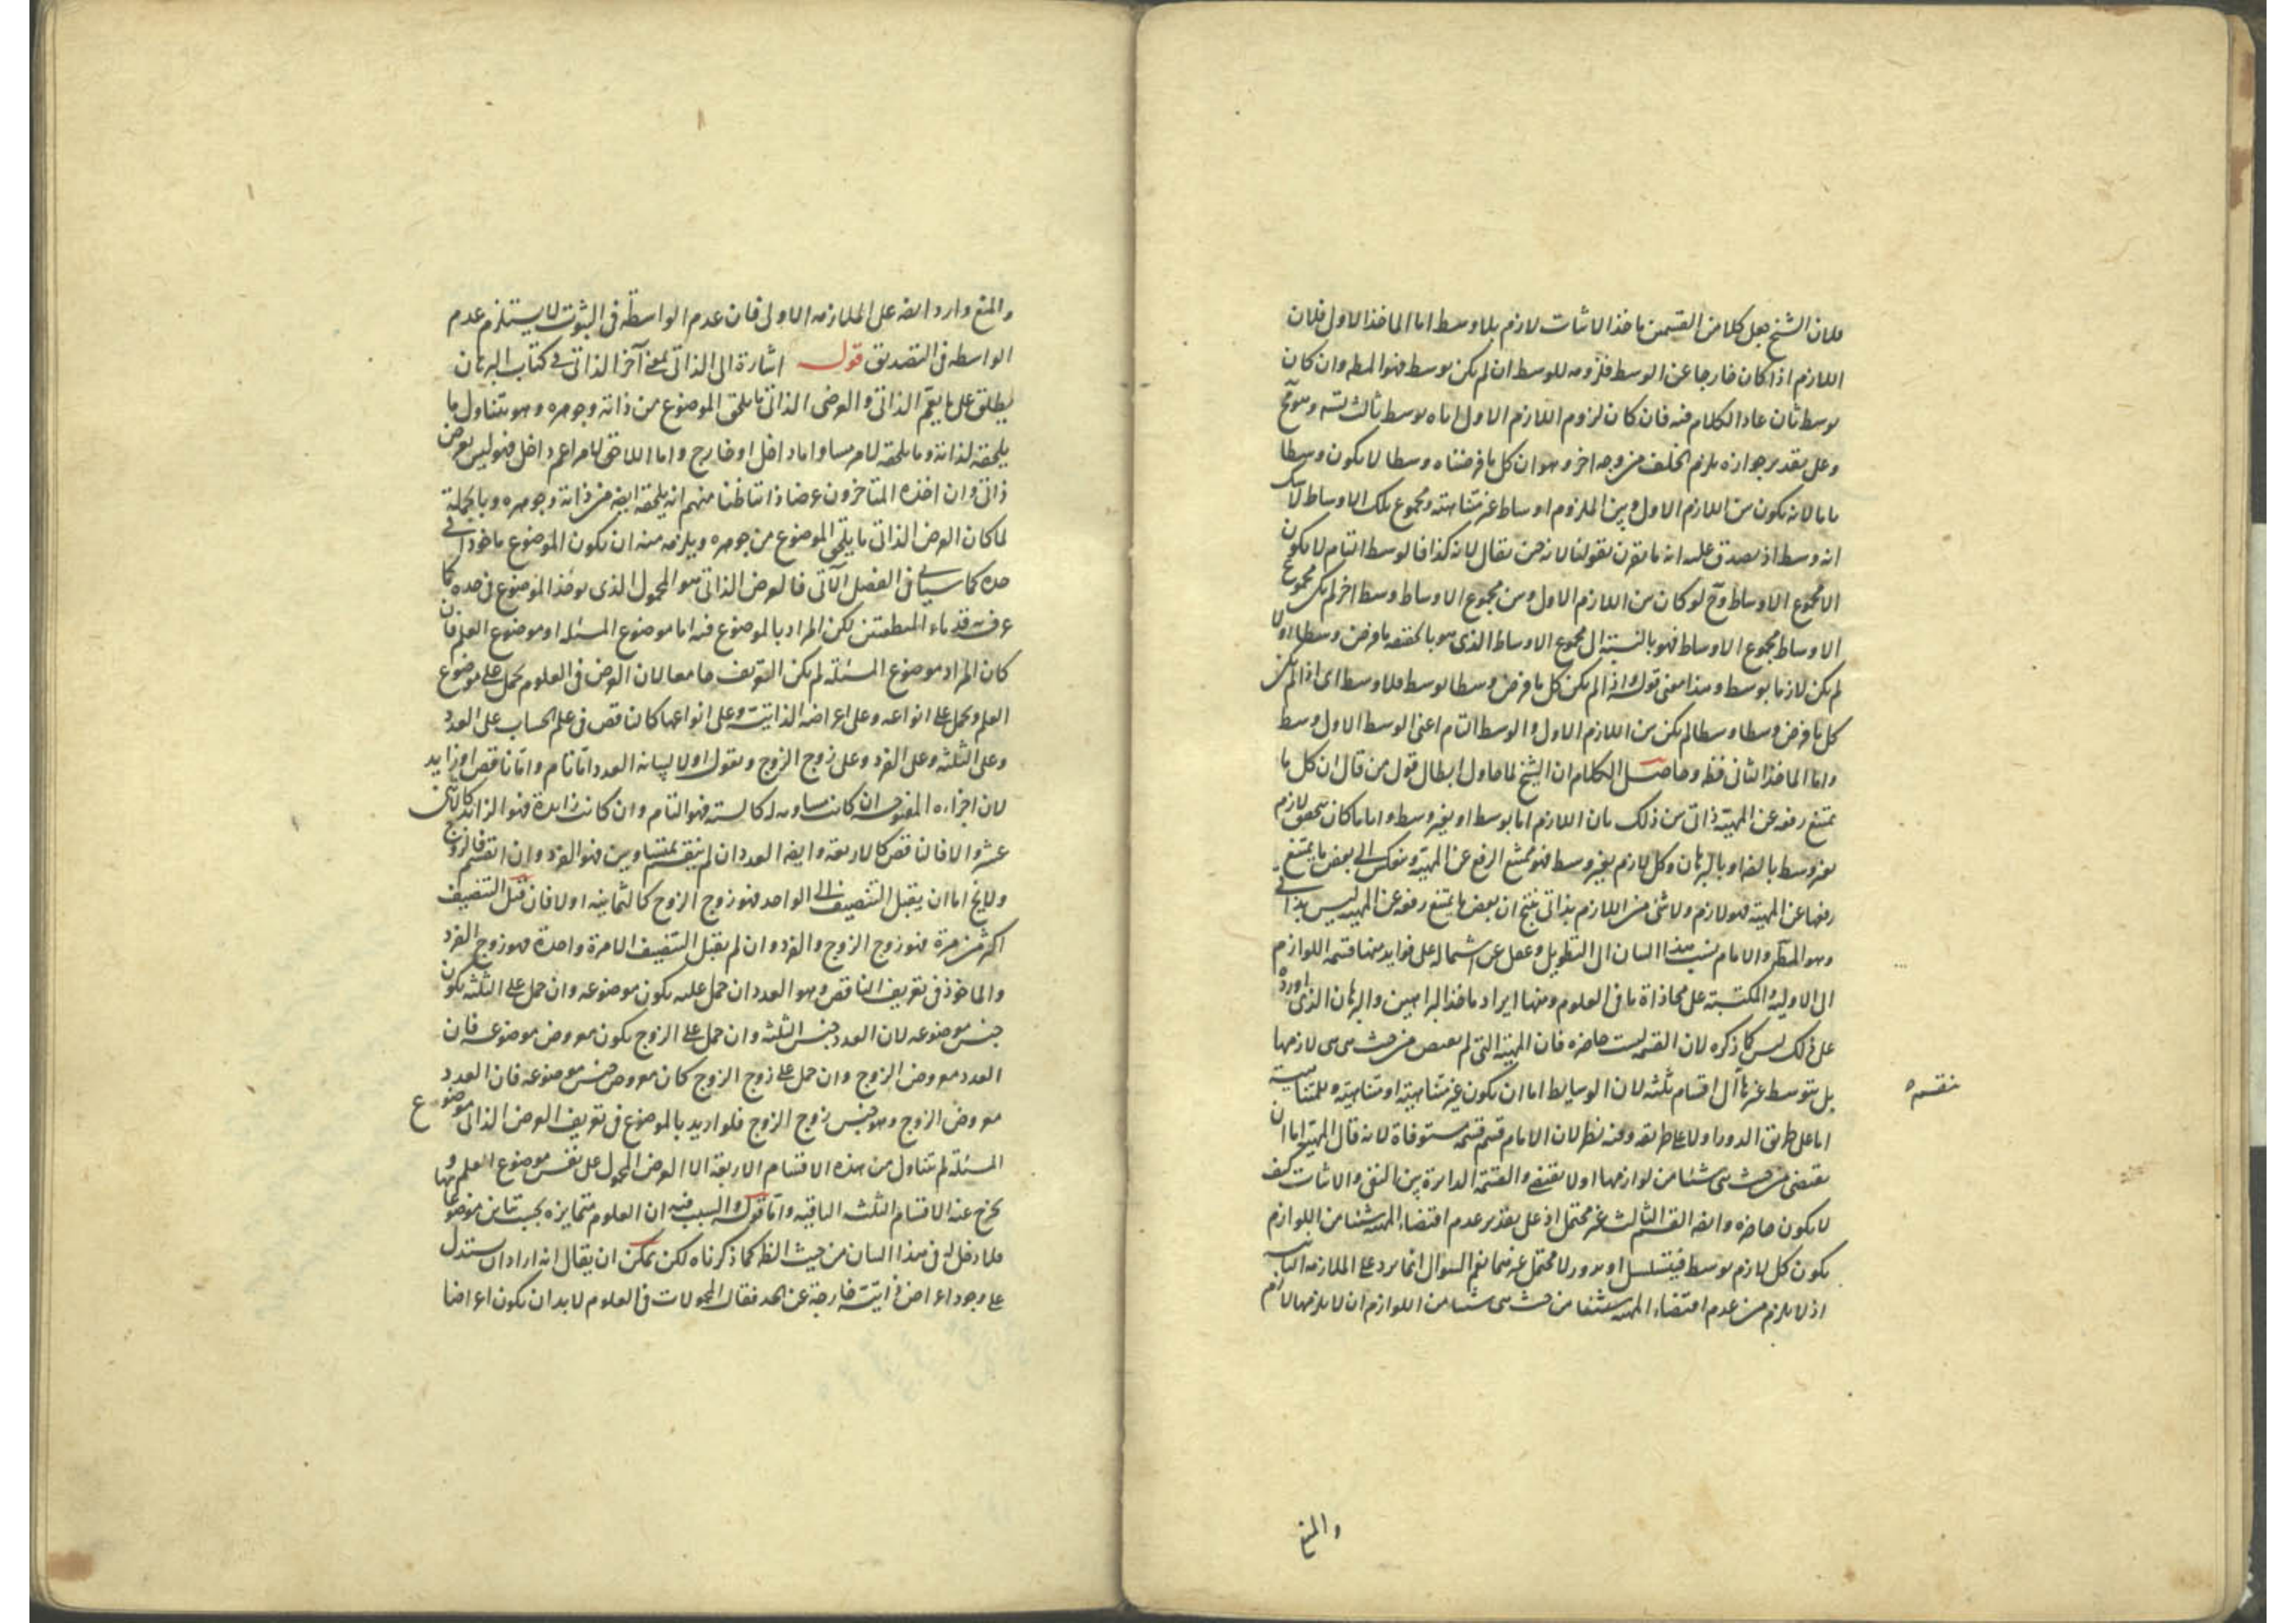 فلان الشيخ جعل كلا من القسمين ماخذا لاثبات لازم بلا وسط اما الماخذ الاول فلان
اللازم اذا كان خارجا عن الوسط فلزومه للوسط ان لم يكن بوسط فهو المط وان كان
بوسط ثان عاد الكلام فيه فان كان لزوم اللازم الاول اياه بوسط ثالث تسه وهو مح
وعلى تقدير جوازه يلزم الخلف من وجه اخر وهو ان كل ما فرضناه وسطا لا يكون وسطا
تاما لانه يكون بين اللازم الاول وبين الملزوم اوساط غير متناهية ومجموع تلك الاوساط لا شك
انه وسط اذ يصدق عليه انه ما يقرن بقولنا لانه حين يقال لانه كذا فالوسط التام لا يكون
الا مجموع الاوساط وح لو كان بين اللازم الاول وبين مجموع الاوساط وسط اخر لم يكن مجموع
الاوساط مجموع الاوساط فهو بالنسبة الى مجموع الاوساط الذى هو بالحقيقه ما فرض وسطا اولا
لم يكن لازما بوسط وهذا معنى قوله واذا لم يكن كل ما فرض وسطا بوسط فلا وسط اى اذا لم يكن
كل ما فرض وسطا وسطا لم يكن بين اللازم الاول والوسط التام اعنى الوسط الاول وسط
واما الماخذ الثانى فظ وحاصل الكلام ان الشيخ لما حاول ابطال قول من قال ان كل ما
يمتنع رفعه عن المهية ذاتى بين ذلك بان اللازم اما بوسط او بغير وسط واياما كان تحقق لازم
بغير وسط بالضا وبالبرهان وكل لازم بغير وسط فهو ممتنع الرفع عن المهية وينعكس الى بعض ما يمتنع
رفعها عن المهية فهو لازم ولا شئ من اللازم بذاتى ينتج ان بعض ما يمتنع رفعه عن المهية ليس بذاتى
وهو المط والامام نسب هذا البيان الى التطويل وغفل عن اشتماله على فوايد منها قسمة اللوازم
الى الاولية والمكتسبة على محاذاة ما فى العلوم ومنها ايراد ماخذ البراهين والبرهان الذى اورده
على ذلك ليس كما ذكره لان القسمه ليست حاضره فان المهية التى لم يقتض من حيث هى هى لازمها
بل بتوسط غيرها الى اقسام ثلثه لان الوسايط اما ان يكون غير متناهية او متناهية والمتناهية
منقسمه
اما على طريق الدور اولا على طريقه وفيه نظر لان الامام قسم قسمه مستوفاة لانه قال المهية اما ان
يقتضى من حيث هى شيئا من لوازمها اولا يقتضى والقسمة الدايرة بين النفى والاثبات كيف
لا يكون حاضره وايضا القسم الثالث غير محتمل اذ على تقدير عدم اقتضاء المهية شيئا من اللوازم
يكون كل لازم بوسط فيتسلسل او يدور ولا محتمل غيرهما نعم السوال انما يرد على الملازمه الثانية
اذ لا يلزم من عدم اقتضاء المهية من حيث هى شيئا من اللوازم ان لا يلزمها لازم
والمنع
والمنع وارد ايضا على الملازمه الاولى فان عدم الواسطة فى الثبوت لا يستلزم عدم
الواسطه فى التصديق قوله اشارة الى الذاتى بمعنى آخر الذاتى فى كتاب البرهان
يطلق على ما يعم الذاتى والعرضى الذاتى ما يلحق الموضوع من ذاته وجوهره وهو يتناول ما
يلحقه لذاته وما يلحقه لامر مساو اما داخل او خارج واما اللاحق لامر اعم داخل فهو ليس بعرض
ذاتى وان اخذه المتاخرون عرضا ذاتيا ظنا منهم انه يلحقه ايضا من ذاته وجوهره وبالجملة
لما كان العرض الذاتى ما يلحق الموضوع من جوهره ويلزمه منه ان يكون الموضوع ماخوذا فى
حده كما سياتى فى الفصل الآتى فالعرض الذاتى هو المحمول الذى يوخذ الموضوع فى حده كما
عرف به قدماء المنطقيين لكن المراد بالموضوع فيه اما موضوع المسئله او موضوع العلم فان
كان المراد موضوع المسئله لم يكن التعريف جامعا لان العرض فى العلوم يحمل على موضوع
العلم ويحمل على انواعه وعلى اعراضه الذاتية وعلى انواعها كالناقص فى علم الحساب على العدد
وعلى الثلثه وعلى الفرد وعلى زوج الزوج ونقول اولا لبيانه العدد اما تام واما ناقص او زايد
لان اجزاءه المفتوحه ان كانت مساوية له كالسته فهو التام وان كانت زايدة فهو الزائد كاثنى
عشر والا فالناقص كالاربعة وايضا العدد ان لم ينقسم بمتساويين فهو الفرد وان انقسم فالزوج
ولا يخ اما ان يقبل التنصيف الى الواحد فهو زوج الزوج كالثمانيه اولا فان قبل التنصيف
اكثر من مرة فهو زوج الزوج والفرد وان لم يقبل التنصيف الا مرة واحدة فهو زوج الفرد
والماخوذ فى تعريف الناقص وهو العدد ان حمل عليه يكون موضوعه وان حمل على الثلثه يكون
جنس موضوعه لان العدد جنس الثلثه وان حمل على الزوج يكون معروض موضوعه فان
العدد معروض الزوج وان حمل على زوج الزوج كان معروض جنس موضوعه فان العدد
معروض الزوج وهو جنس زوج الزوج فلو اريد بالموضوع فى تعريف العرض الذاتى موضوع
المسئلة لم يتناول من هذه الاقسام الاربعة الا العرض المحمول على نفس موضوع العلم و
يخرج عنه الاقسام الثلثه الباقيه واما قوله والسبب فيه ان العلوم متمايزه بحسب تباين موضوعاتها
فلا دخل له فى هذا البيان من حيث النظر كما ذكرناه لكن يمكن ان يقال انه اراد ان يستدل
على وجود اعراض ذاتية خارجة عن الحد فقال المحمولات فى العلوم لا بد ان يكون اعراضا